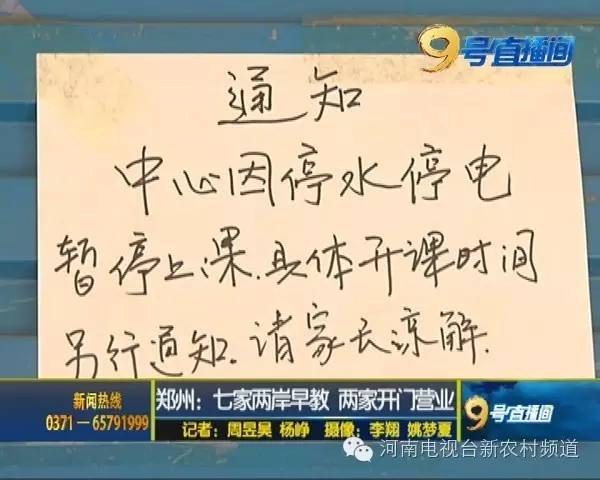 9号直播间
通知
中心因停水停电
暂停上课.具体开课时间
另行通知.请家长谅解.
新闻热线
0371—65791999
郑州：七家两岸早教 两家开门营业
记者：周昱昊 杨峥 摄像：李翔 姚梦夏
9号直播间
河南电视台新农村频道